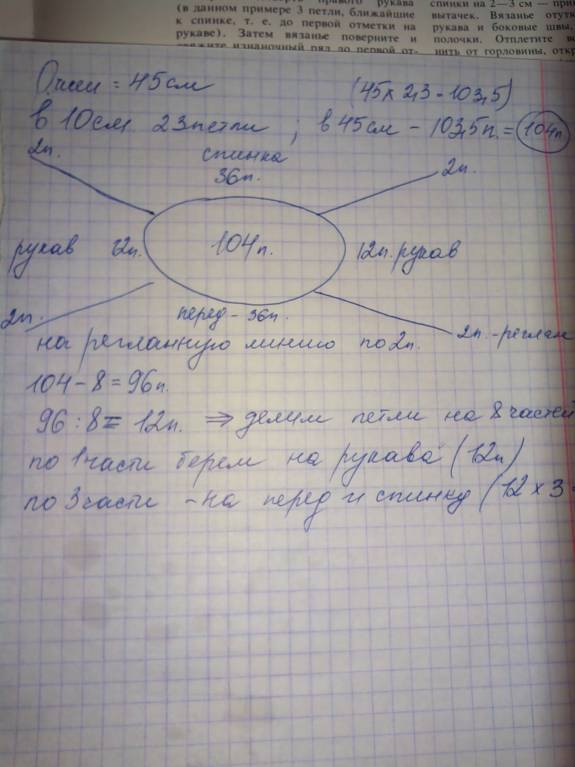 правого рукава
(в данном примере 3 петли, ближайшие
к спинке, т. е. до первой отметки на
рукаве). Затем вязанье поверните и
свяжите изнаночный ряд до первой от-
спинки на 2—3 см — при
вытачек. Вязанье отутю
рукава и боковые швы,
полочки. Отплетите во
нить от горловины, откр
Ошеи = 45см
(45 х 2,3 - 103,5)
в 10см 23 петли ; в 45 см - 103,5 п. = 104п
2п. спинка 2п.
36п.
рукав 12п. 104п. 12п. рукав
2п. перед - 36п. 2п. - реглан
на регланную линию по 2п.
104 - 8 = 96п.
96 : 8 = 12п. ⇒ делим петли на 8 частей
по 1 части берем на рукава (12п)
по 3 части - на перед и спинку (12 х 3